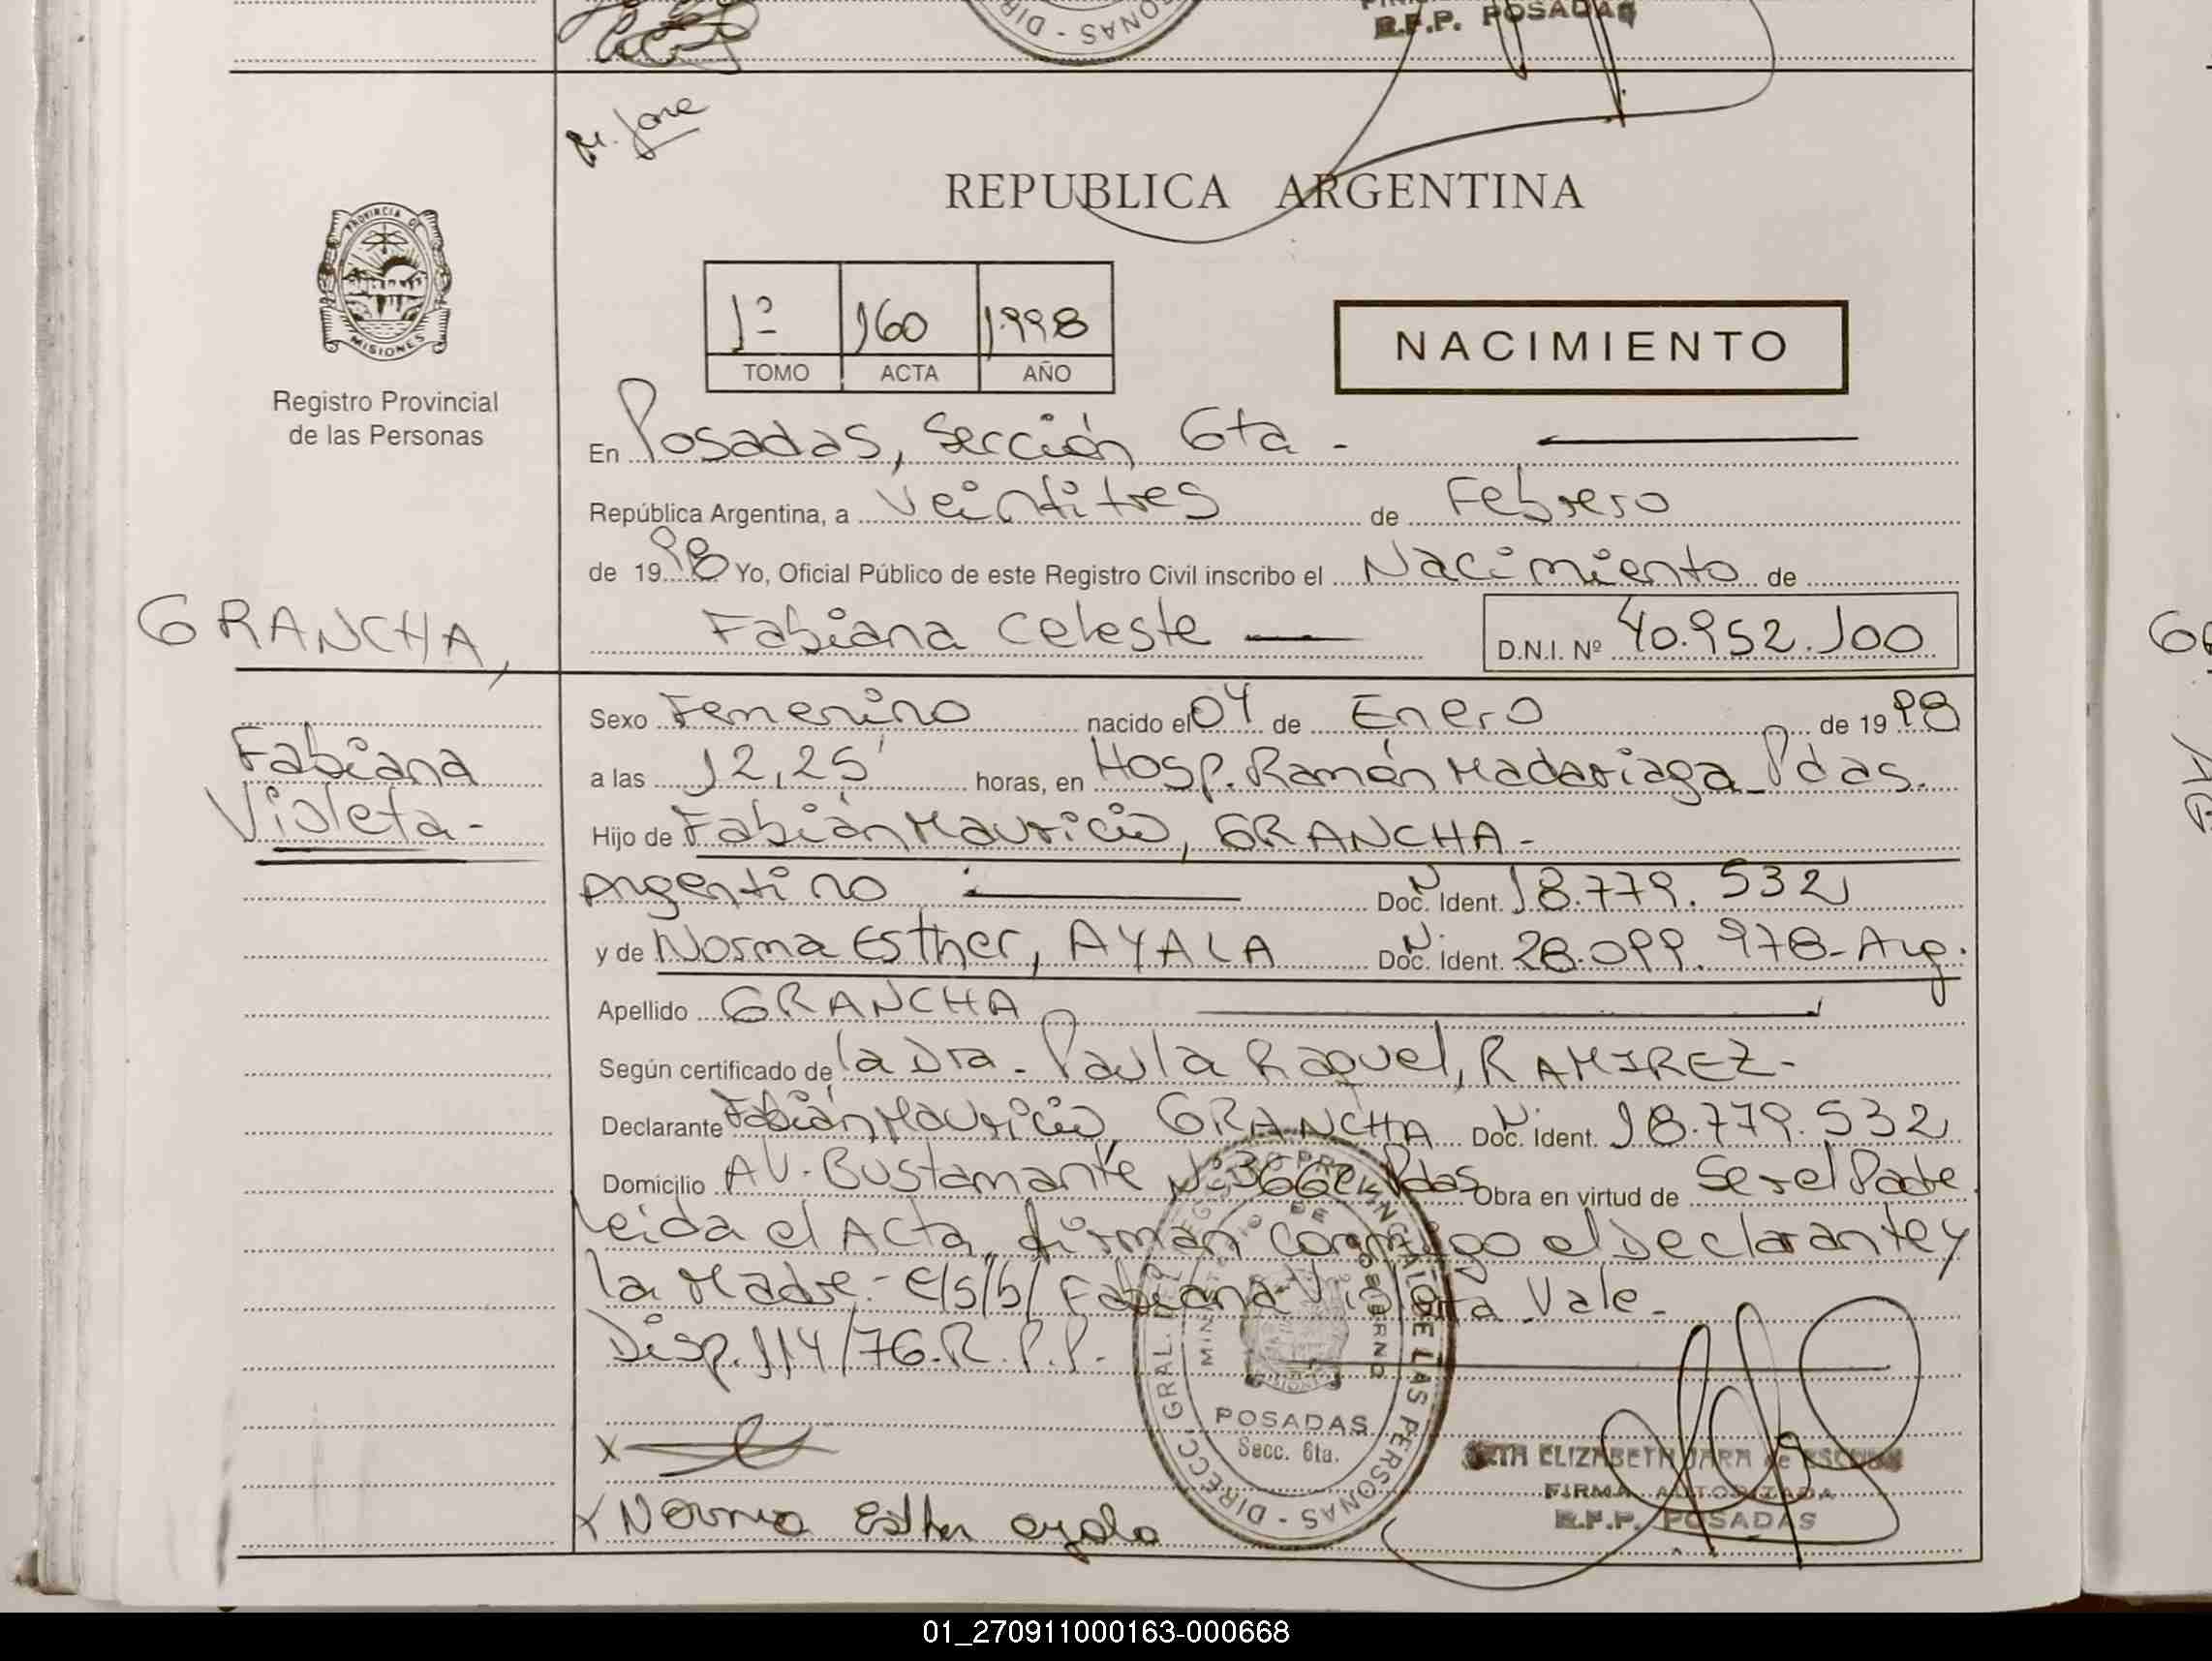 DIR - SONAS
R.P.P. POSADAS
REPUBLICA ARGENTINA
PROVINCIA DE
MISIONES
Registro Provincial
de las Personas
1º 160 1998
TOMO ACTA AÑO
NACIMIENTO
En Posadas, Sección 6ta -
República Argentina, a Veintitres de Febrero
de 1998 Yo, Oficial Público de este Registro Civil inscribo el Nacimiento de
GRANCHA,
Fabiana Celeste — D.N.I. Nº 40.952.100
Fabiana
Violeta-
Sexo Femenino nacido el 04 de Enero de 1998
a las 12,25' horas, en Hosp. Ramón Madariaga_Pdas.
Hijo de Fabián Mauricio, GRANCHA-
Argentino Doc. Ident. N 18.779.532
y de Norma Esther, AYALA Doc. Ident. N. 28.099.978-Arg.
Apellido GRANCHA
Según certificado de la Dra. Paula Raquel, RAMIREZ-
Declarante Fabián Mauricio, GRANCHA Doc. Ident. N. 18.779.532
Domicilio AV. Bustamante Nº 3662 Pdas Obra en virtud de Ser el Padre
Leida el Acta, firman conmigo el Declarante y
la Madre.- e/s/b/ Fabiana Violeta Vale-
Disp. 114/76.R.P.P.-
x
x Norma Esther ayala
DIRECC. GRAL. DEL REGISTRO PROVINCIAL DE LAS PERSONAS
MINISTERIO DE GOBIERNO
MISIONES
POSADAS
Secc. 6ta.
ELIZABETH JARA de
FIRMA AUTORIZADA
R.P.P. POSADAS
01_270911000163-000668